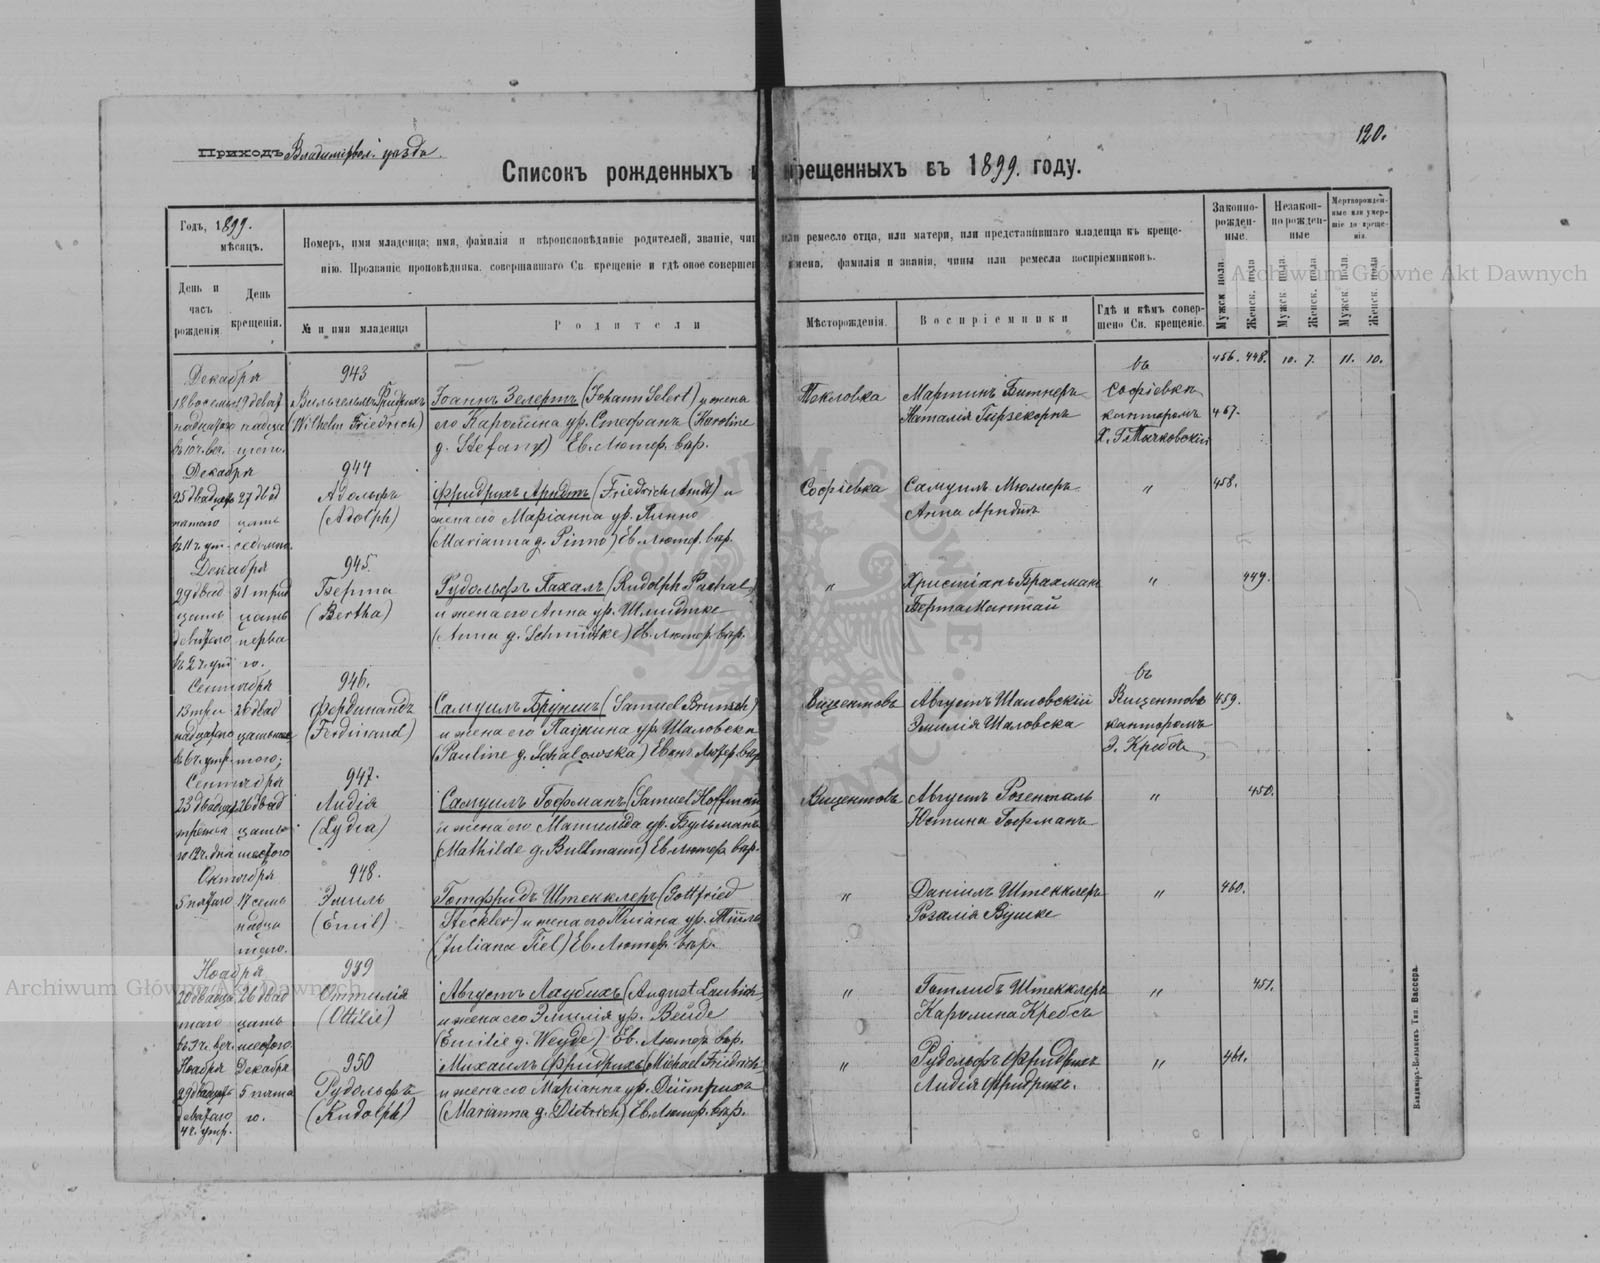 120.
Приходъ Владимірвол. уѣзда.
Списокъ рожденныхъ и крещенныхъ въ 1899. году.
Годъ, 1899.
мѣсяцъ.
День и часъ рожденія.
День крещенія.
Номеръ, имя младенца; имя, фамилія и вѣроисповѣданіе родителей, званіе, чинъ или ремесло отца, или матери, или представившаго младенца къ креще-
нію. Прозваніе проповѣдника, совершавшаго Св. крещеніе и гдѣ оное совершено имена, фамилія и званія, чины или ремесла воспріемниковъ.
№ и имя младенца
Родители
Мѣсторожденія.
Воспріемники
Гдѣ и кѣмъ совершено Св. крещеніе.
Законно-рожденные.
Незакон-норожденные
Мертворожденные или умершіе до крещенія.
Мужск пола.
Женск. пола
Мужск пола.
Женск. пола
Мужск. пола.
Женск. пола
456. 448. 10. 7. 11. 10.
Декабря 943 въ
Вильгельмъ Фридрихъ Іоаннъ Зелертъ (Johann Selert) и жена Мартинъ Битнеръ Софіевкѣ
(Wilhelm Friedrich) его Каролина ур. Стефанъ (Karoline Наталія Гирзекорнъ канторомъ 457.
въ 10 ч. веч. g. Stefan) Ев. Лютер. вѣр.
Декабря 944
27 двад Адольфъ Фридрихъ Арндтъ (Friedrich Arndt) и Софіевка Самуилъ Мюллеръ " 458.
(Adolph) жена его Маріанна ур. Пинно Анна Арндтъ
въ 11 ч. ут. седьмаго (Marianna g. Pinno) Ев. Лютер. вѣр.
Декабря 945.
29 двад 31 трид Берта Рудольфъ Пахалъ (Rudolph Pachal) " Христіанъ Брахманъ " 449.
цать цать (Bertha) и жена его Анна ур. Шмидтке Берта Мантай
девятаго перва (Anna g. Schmidtke) Ев. Лютер. вѣр.
въ 2 ч. ут. го.
Сентября 946. въ
26 двад Фердинандъ Самуилъ Бруншъ (Samuel Brunsch) Вицентовъ Августъ Шаловскій Вицентовѣ 459.
(Ferdinand) и жена его Паулина ур. Шаловска Эмилія Шаловска канторомъ
въ 6 ч. утр. (Pauline g. Schalowska) Еван. Лютер. вѣр. Э. Кребсъ
Сентября 947.
26 двад Лидія Самуилъ Гофманъ (Samuel Hoffmann) Вицентовъ Августъ Розенталь " 450.
(Lydia) и жена его Матильда ур. Бульманъ Юстина Гофманъ
шестого (Mathilde g. Bullmann) Ев. Лютер. вѣр.
Октября 948.
5 пятаго 17 семь Эмиль Готфридъ Штекклеръ (Gottfried " Даніилъ Штекклеръ " 460.
надца (Emil) Steckler) и жена его Юліана ур. Тиль Розалія Вушке
таго. (Juliana Tiel) Ев. Лютер. вѣр.
Ноября 949
26 двад Оттилія Августъ Лаубихъ (August Laubich " Готлибъ Штекклеръ " 451.
цать (Ottilie) и жена его Эмилія ур. Вейде Каролина Кребсъ
въ 9 ч. веч. шестого. (Emilie g. Weyde) Ев. Лютер. вѣр.
Ноября Декабря 950 Михаилъ Фридрихъ (Michael Friedrich " Рудольфъ Фридрихъ " 461.
5 пята Рудольфъ и жена его Маріанна ур. Дитрихъ Лидія Фридрихъ.
девятаго го. (Rudolph) (Marianna g. Dietrich) Ев. Лютер. вѣр.
4 ч. утр.
Владиміръ-Волынскъ Тип. Вассера.
Archiwum Główne Akt Dawnych
Archiwum Główne Akt Dawnych
ARCHIWUM GŁÓWNE AKT DAWNYCH